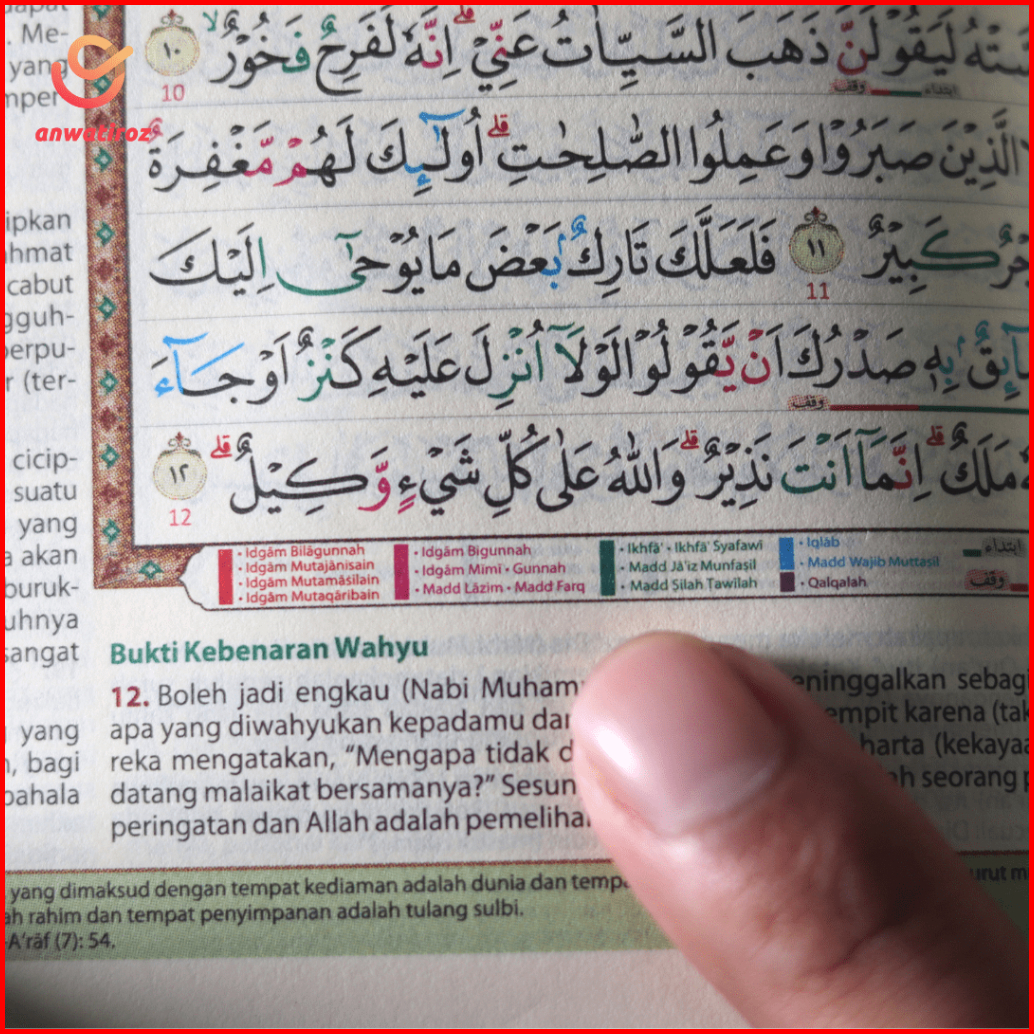 anwatiroz
dapat
. Me-
yang
mper
ipkan
ahmat
cabut
gguh-
perpu-
r (ter-
cicip-
suatu
yang
a akan
buruk-
uhnya
sangat
yang
n, bagi
pahala
لَيَقُوْلَنَّ ذَهَبَ السَّيِّاٰتُ عَنِّيْ ۗاِنَّهٗ لَفَرِحٌ فَخُوْرٌۙ ١٠
10
ابتداء وقف
الَّذِيْنَ صَبَرُوْا وَعَمِلُوا الصّٰلِحٰتِۗ اُولٰۤىِٕكَ لَهُمْ مَّغْفِرَةٌ
كَبِيْرٌ ١١ فَلَعَلَّكَ تَارِكٌۢ بَعْضَ مَا يُوْحٰىٓ اِلَيْكَ
11
بِهٖ صَدْرُكَ اَنْ يَّقُوْلُوْا لَوْلَآ اُنْزِلَ عَلَيْهِ كَنْزٌ اَوْ جَاۤءَ
وقف
مَلَكٌ ۗاِنَّمَآ اَنْتَ نَذِيْرٌ ۗ وَاللّٰهُ عَلٰى كُلِّ شَيْءٍ وَّكِيْلٌ ۗ ١٢
12
• Idgām Bilāgunnah
• Idgām Mutajānisain
• Idgām Mutamāsilain
• Idgām Mutaqāribain
• Idgām Bigunnah
• Idgām Mimi • Gunnah
• Madd Lāzim • Madd Farq
• Ikhfā' • Ikhfā' Syafawi
• Madd Jā'iz Munfaṣil
• Madd Ṣilah Ṭawilah
• Iqlāb
• Madd Wajib Muttaṣil
• Qalqalah
ابتداء
وقف
Bukti Kebenaran Wahyu
12. Boleh jadi engkau (Nabi Muham eninggalkan sebagi
apa yang diwahyukan kepadamu dan empit karena (tak
reka mengatakan, “Mengapa tidak d harta (kekayaa
datang malaikat bersamanya?” Sesun h seorang p
peringatan dan Allah adalah pemelihar
yang dimaksud dengan tempat kediaman adalah dunia dan tempa urut m
ah rahim dan tempat penyimpanan adalah tulang sulbi.
-A‘rāf (7): 54.